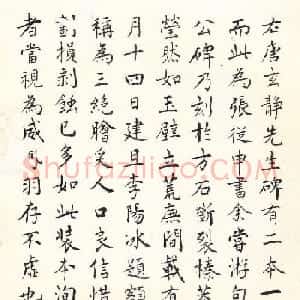 右唐玄静先生碑有二本一
而此為張從申書余嘗游句
公碑乃刻於方石斷裂榛
瑩然如玉壁立荒蕪間載有
月十四日建且李陽冰題額
稱為三絕膾炙人口良信惜
損剥蝕已多如此裝本洵
者當視為威羽存不虛也
Shufaziliao.com